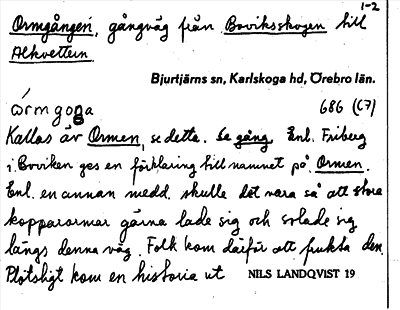 1-2
Ormgången, gångväg från Boviksskogen till
Alkvettern
Bjurtjärns sn, Karlskoga hd, Örebro län.
órmgoŋa 686 (67)
Kallas äv Ormen, se detta. Se gång. Enl. Friberg
i Boviken ges en förklaring till namnet på Ormen.
Enl. en annan medd. skulle det vara så att stora
kopparormar gärna lade sig och solade sig
längs denna väg. Folk kom därför att frukta den.
Plötsligt kom en historia ut NILS LANDQVIST 19